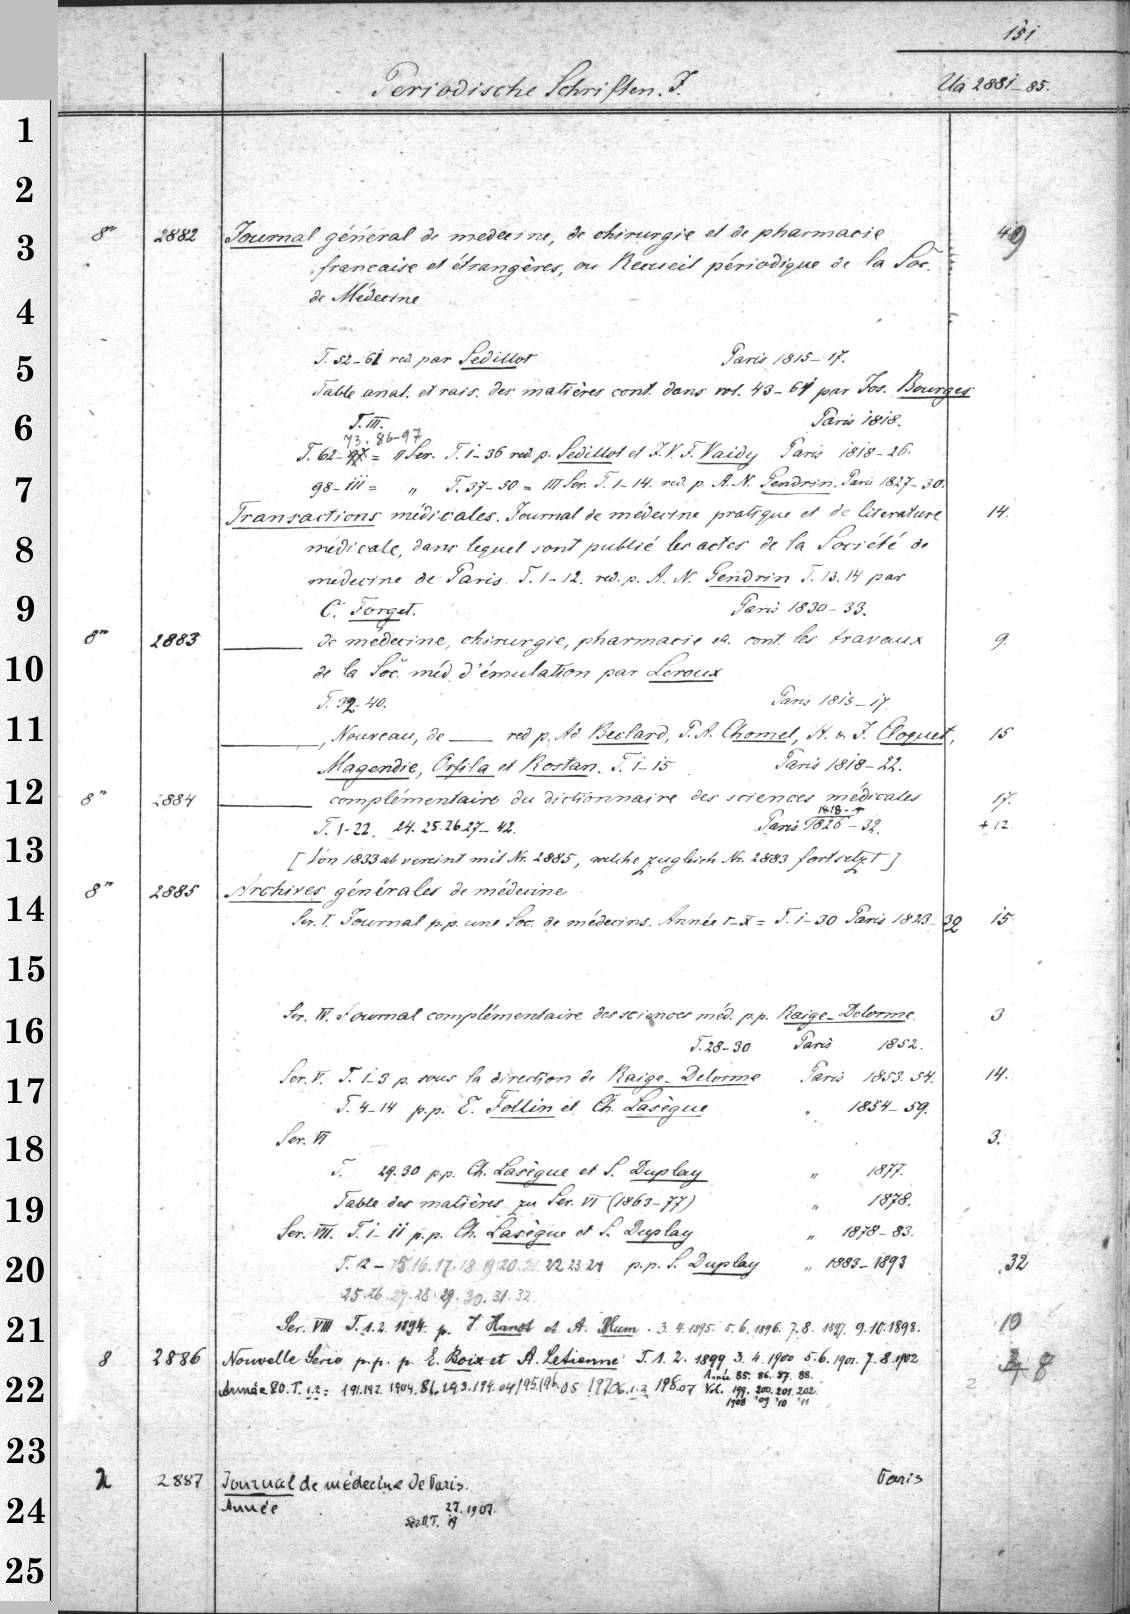 151
Periodische Schriften. J. Ua 2881-85.
1
2
3 8° 2882 Journal général de medecine, de chirurgie et de pharmacie 49
francaise et étrangères, ou Recueil périodique de la Soc.
4 de Médecine
5 T. 52-61 red. par Sedillot Paris 1815-17.
Table anal. et rais. des matières cont. dans vol. 43-61 par Jos. Bourges
6 T. III. Paris 1818.
73. 86-97
T. 62- = II Ser. T. 1-36 red. p. Sedillot et J. V. F. Vaidy Paris 1818-26.
7 98-111 = " T. 37-50 = III Ser. T. 1-14. red. p. A. N. Gendrin. Paris 1827-30.
Transactions médicales. Journal de médecine pratique et de literature 14.
8 médicale, dans lequel sont publié les actes de la Société de
médecine de Paris. T. 1-12. red. p. A. N. Gendrin T. 13. 14 par
9 C. Forget. Paris 1830-33.
8° 2883 ——— de médecine, chirurgie, pharmacie etc. cont. les travaux 9.
10 de la Soc. méd. d'émulation par Leroux
T. 32-40. Paris 1815-17.
11 ———, Nouveau, de —— red p. Ad Beclard, P. A. Chomel, H. & J. Cloquet, 15
Magendie, Orfila et Rostan. T. 1-15 Paris 1818-22.
12 8° 2884 ——— complémentaire du dictionnaire des sciences médicales 17.
1818-
T. 1-22. 24. 25. 26 27-42. Paris 1826-32. + 12.
13 [Von 1833 ab vereint mit Nr. 2885, welche zugleich Nr. 2883 fortsetzt]
8° 2885 Archives générales de médecine
14 Ser. I. Journal p.p. une Soc. de médecins. Année I-X = T. 1-30 Paris 1823-32 15
15
16 Ser. IV. Journal complémentaire des sciences méd. p.p. Raige-Delorme. 3
T. 28-30 Paris 1852.
17 Ser. V. T. 1-3 p. sous la direction de Raige-Delorme Paris 1853. 54. 14.
T. 4-14 p.p. E. Follin et Ch. Lasègue " 1854-59.
18 Ser. VI 3.
T. 29. 30 p.p. Ch. Lasègue et S. Duplay " 1877.
19 Table des matières zu Ser. VI (1863-77) " 1878.
Ser. VII. T. 1-11 p.p. Ch. Lasègue et S. Duplay " 1878-83.
20 T. 12-15. 16. 17. 18. 19 20. 21. 22 23. 24 p.p. S. Duplay " 1883-1893 32
25. 26. 27. 28. 29. 30. 31. 32.
21 Ser. VIII T. 1. 2. 1894. p. V. Hanot et A. Blum. 3. 4. 1895. 5. 6. 1896. 7. 8. 1897. 9. 10. 1898. 10
8 2886 Nouvelle Serie p.p. p. E. Boix et A. Letienne T. 1. 2. 1899 3. 4. 1900 5. 6. 1901. 7. 8. 1902 8
Année 85. 86. 87. 88.
22 Année 80. T. 1.2 = 191.192. 1904. 81. 193. 194. 04 195. 196. 05 197 06. 1.2 198. 07 Vol. 199. 200. 201. 202. 2
1908 '09 '10 '11
23
2 2887 Journal de médecine de Paris. Paris
24 Année 27. 1907.
Ser. II. T. 19
25